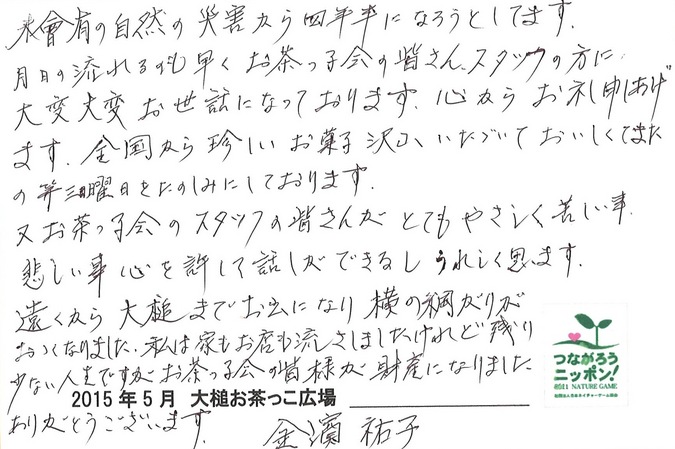 未曾有の自然の災害から四年半になろうとしてます.
月日の流れるのも早く お茶っ子会の皆さん、スタッフの方に
大変大変 お世話になっております. 心から お礼申しあげ
ます. 全国から珍しい お菓子 沢山、いただいて おいしくてまた
の第三日曜日をたのしみにしております.
又 お茶っ子会の スタッフの皆さんが とても やさしく 苦しい事.
悲しい事 心を許して話しができるし うれしく思います.
遠くから 大槌 まで お出になり 横の綱がりが
おおくなりました. 私は家もお店も流しましたけれど 残り
少ない人生ですが お茶っ子会の皆様が 財産になりました
ありがとうございます.
2015年5月 大槌お茶っこ広場
金濱 祐子
つながろう
ニッポン!
NATURE GAME